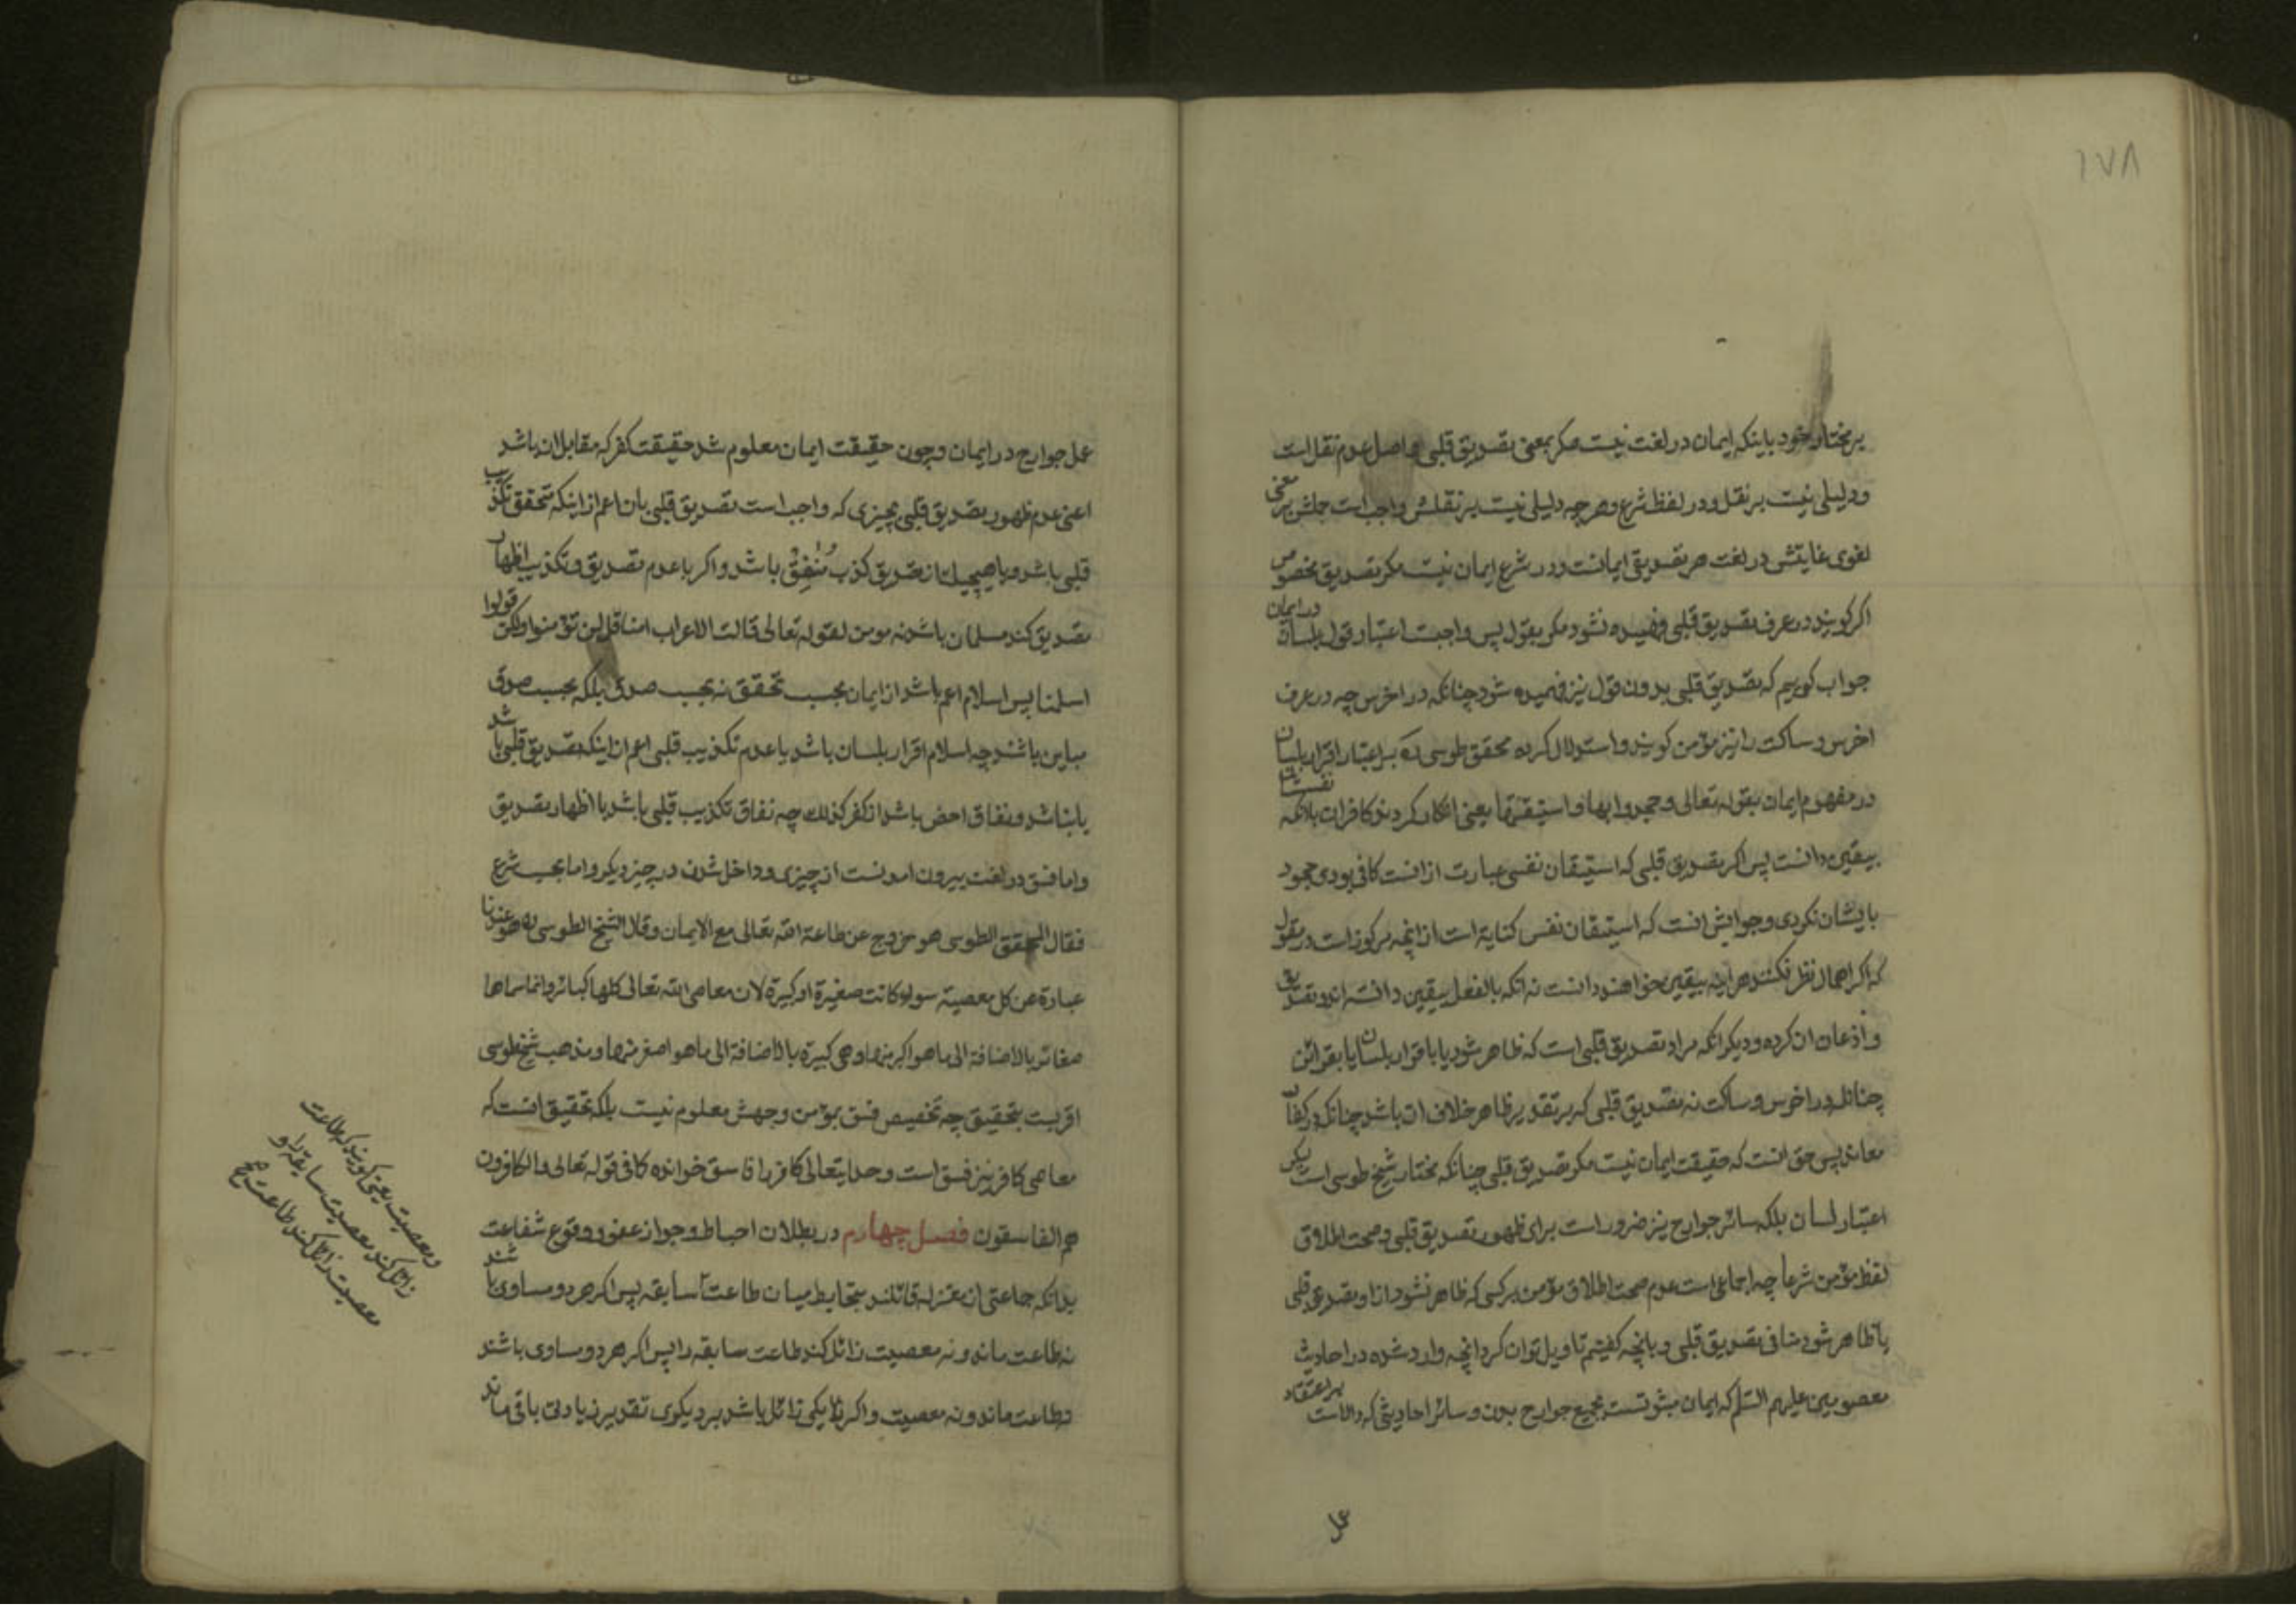 ۱۷۸
بر مختار خود باینکه ایمان در لغت نیست مکر بمعنی تصدیق قلبی و اصل عدم نقل است
و دلیلی نیست بر نقل و در لفظ شرع و هر چه دلیلی نیست بر نقلش واجب است حملش بر معنی
لغوی غایتش در لغت هر تصدیقی ایمانست و در شرع ایمان نیست مکر تصدیق مخصوص
اکر کویند در عرف تصدیق قلبی فهمیده نشود مکر بقول پس واجبت اعتبار قول بلسان در ایمان
جواب کوییم که تصدیق قلبی بدون قول نیز فهمیده شود چنانکه در اخرس چه در عرف
اخرس و ساکت را نیز مؤمن کویند و استدلال کرده محقق طوسی ره بر اعتبار اقرار بلسان
در مفهوم ایمان بقوله تعالی و جحدوا بها و استیقنتها یعنی انکار کردند کافران بلانکه
بیقین دانست پس اکر تصدیق قلبی که استیقان نفسی عبارت از انست کافی بودی جحود
بایشان نکردی و جوابش انست که استیقان نفس کنایة است از انچه مرکوز است در عقول
که اکر اهمال نظر نکنند هر اینه بیقین خواهند دانست نه انکه بالفعل بیقین دانسته اند و تصدیق
و اذعان ان کرده و دیکر انکه مراد تصدیق قلبی است که ظاهر شود یا باقرار بلسان یا بقرائن
چنانکه در اخرس و ساکت نه تصدیق قلبی که بر تقدیر ظاهر خلاف ان باشد چنانکه در کفار
معاند پس حق انست که حقیقت ایمان نیست مکر تصدیق قلبی چنانکه مختار شیخ طوسی است لیکن
اعتبار لسان بلکه سائر جوارح نیز ضرور است برای ظهور تصدیق قلبی و صحت اطلاق
لفظ مؤمن شرعا چه اجماعی است عدم صحت اطلاق مؤمن بر کسی که ظاهر نشود از او تصدیق قلبی
یا ظاهر شود منافی تصدیق قلبی و بانچه کفتیم تاویل توان کرد انچه وارد شده در احادیث
معصومین علیهم السّلم که ایمان مبثوتست بجمیع جوارح بدن و سائر احادیثی که دالاست بر اعتقاد
عمل
عمل جوارح در ایمان و چون حقیقت ایمان معلوم شد حقیقت کفر که مقابل ان باشد
اعنی عدم ظهور تصدیق قلبی بچیزی که واجب است تصدیق قلبی بان اعم از اینکه متحقق تکذیب
قلبی باشد و یا هیچیک از تصدیق کذب باشد و اکر با عدم تصدیق و تکذیب اظهار
تصدیق کند مسلمان باشد نه مومن لقوله تعالی قالت الاعراب امنا قل لن تؤمنوا ولکن قولوا
اسلمنا پس اسلام اعم باشد از ایمان بحسب تحقق نه بحسب صدق بلکه بحسب صدق
مباین باشند چه اسلام اقرار بلسان باشد یا عدم تکذیب قلبی اعم از اینکه تصدیق قلبی باشد
یا نباشد و نفاق اخص باشد از کفر کذلك چه نفاق تکذیب قلبی باشد با اظهار تصدیق
و اما فسق در لغت بیرون امدنست از چیزی و داخل شدن در چیز دیکر و اما بحسب شرع
فقال المحقق الطوسی هو خروج عن طاعة الله تعالی مع الایمان و قال الشیخ الطوسی ره هو عندنا
عبارة عن کل معصیة سواء کانت صغیرة او کبیرة لان معاصی الله تعالی کلها کبائر و انما سماها
صغائر بالاضافة الی ما هو اکبر منها و هی کبیرة بالاضافة الی ما هو اصغر منها و مذهب شیخ طوسی
اقربست بتحقیق چه تخصیص فسق بمؤمن وجهش معلوم نیست بلکه تحقیق انست که
معاصی کافر نیز فسق است و خدایتعالی کافر را فاسق خوانده کما فی قوله تعالی و الکافرون
هم الفاسقون فصل چهارم در بطلان احباط و جواز عفو و وقوع شفاعت
بدانکه جماعتی از معتزله قائلند بتحابط میان طاعت سابقه پس اکر هر دو مساوی باشند
نه طاعت ماند و نه معصیت زائل کند طاعت سابقه را پس اکر هر دو مساوی باشند
نه طاعت ماند و نه معصیت و اکر نه یکی زائل باشد بر دیکری بقدر زیادتی باقی ماند
و معصیت یعنی کویند که طاعت
زائل کند معصیت سابقه را و
معصیت زائل کند طاعت صح